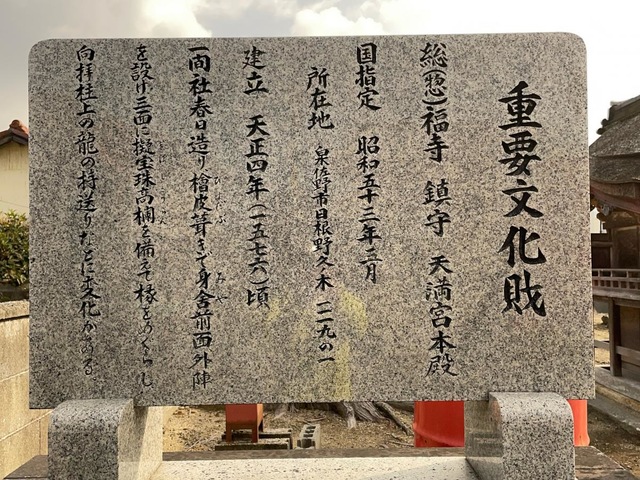 重要文化財
総(惣)福寺 鎮守 天満宮本殿
国指定 昭和五十三年五月
所在地 泉佐野市日根野久ノ木一二九の一
建立 天正四年(一五七六)頃
一間社春日造り檜皮葺きで身舎前面外陣
ひわだぶ もや
を設け三面に擬宝珠高欄を備えて縁をめぐらし
ぎぼし こうらん
向拝柱上の龍の持送りなどに変化がある。